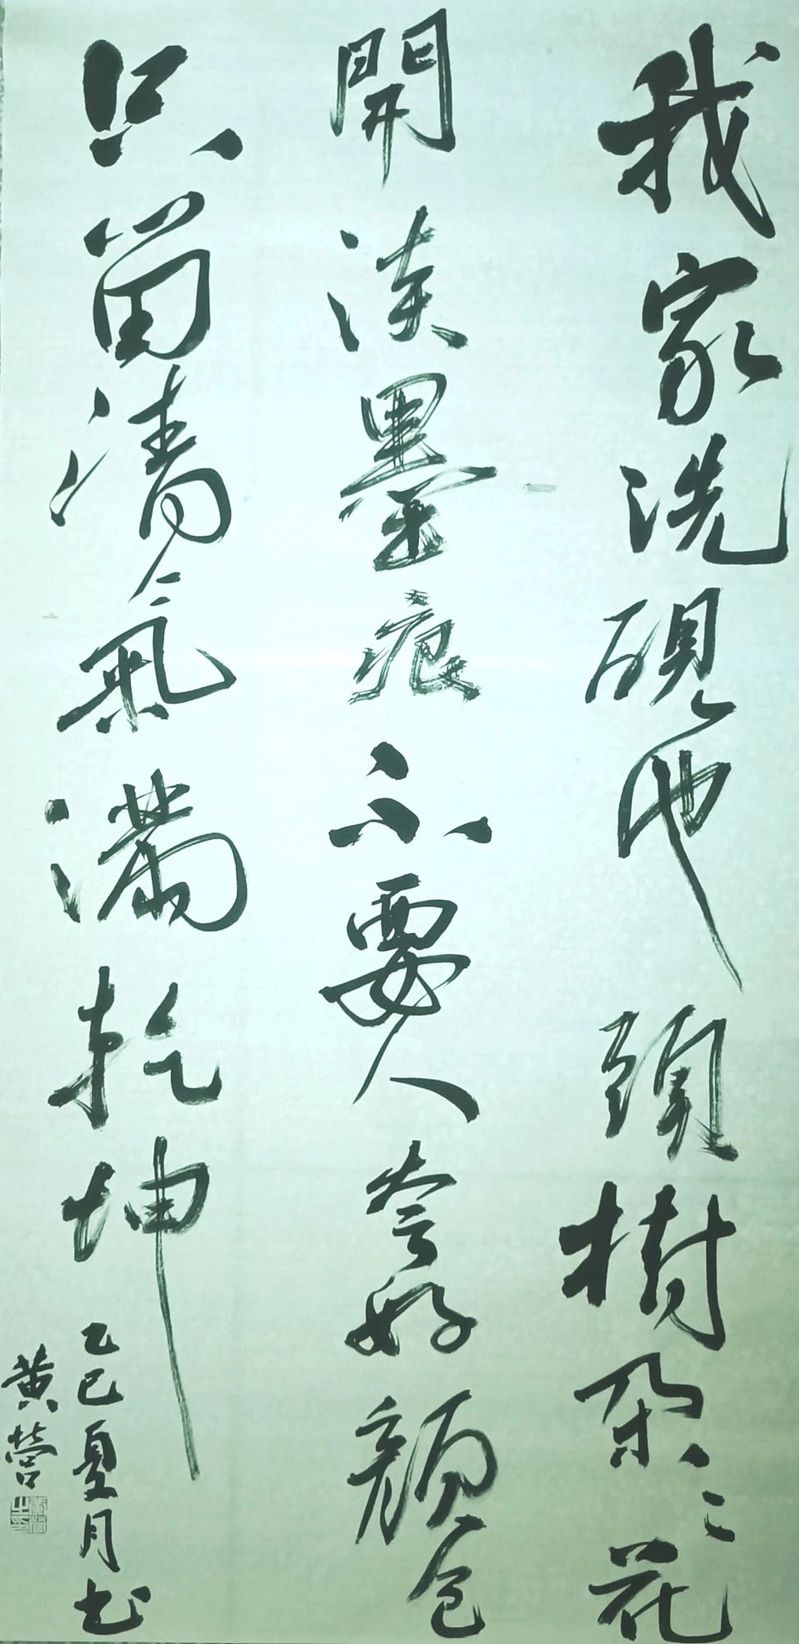 我家洗硯池頭樹朶〻花
開淡墨痕不要人夸好顔色
只留清氣滿乾坤
乙巳夏月書
黄營